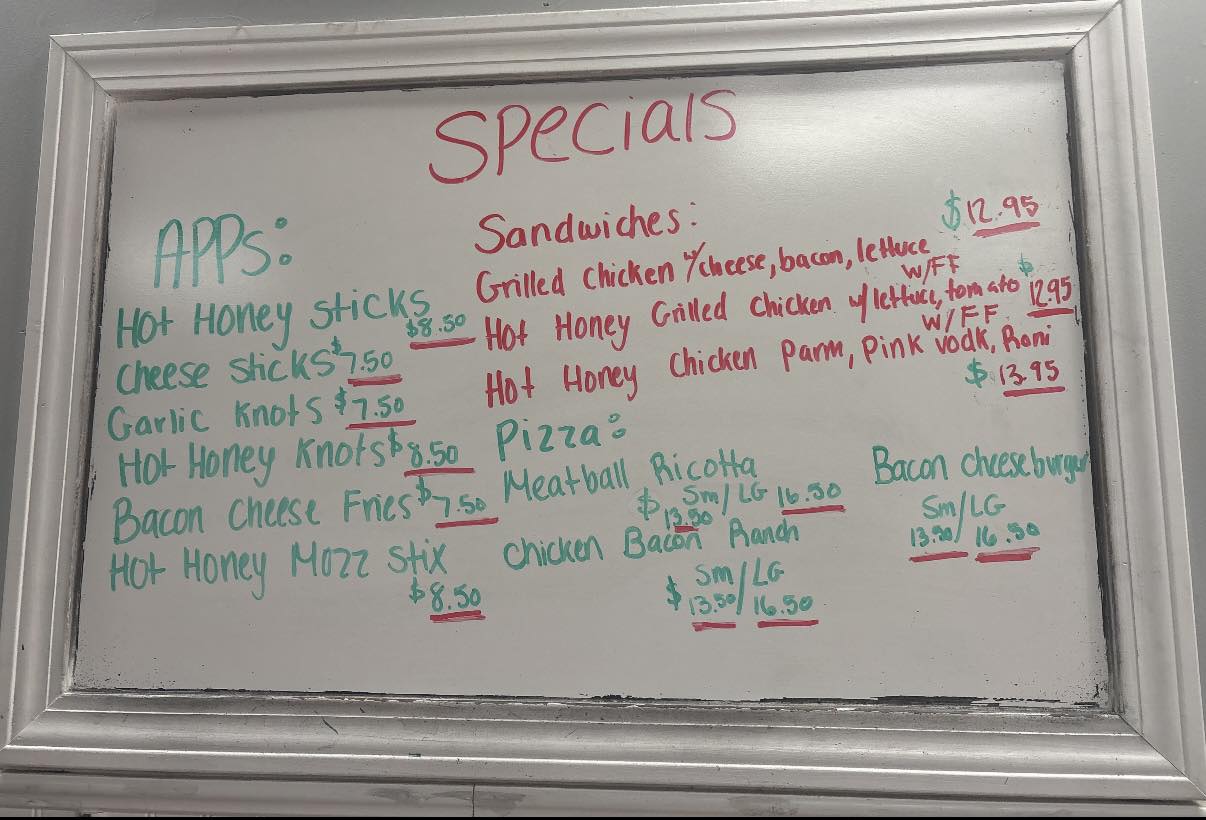 Specials
APPs:
Hot Honey sticks
$8.50
cheese sticks $7.50
Garlic Knots $7.50
Hot Honey Knots $8.50
Bacon Cheese Fries $7.50
Hot Honey Mozz stix
$8.50
Sandwiches: $12.95
Grilled Chicken w/cheese, bacon, lettuce
w/FF
Hot Honey Grilled Chicken w/lettuce, tomato $12.95
w/FF
Hot Honey Chicken Parm, Pink vodk, Roni
$13.95
Pizza:
Meatball Ricotta
Sm/LG 16.50
$13.50
Chicken Bacon Ranch
Sm/LG
$13.50/16.50
Bacon cheeseburger
Sm/LG
13.50/16.50